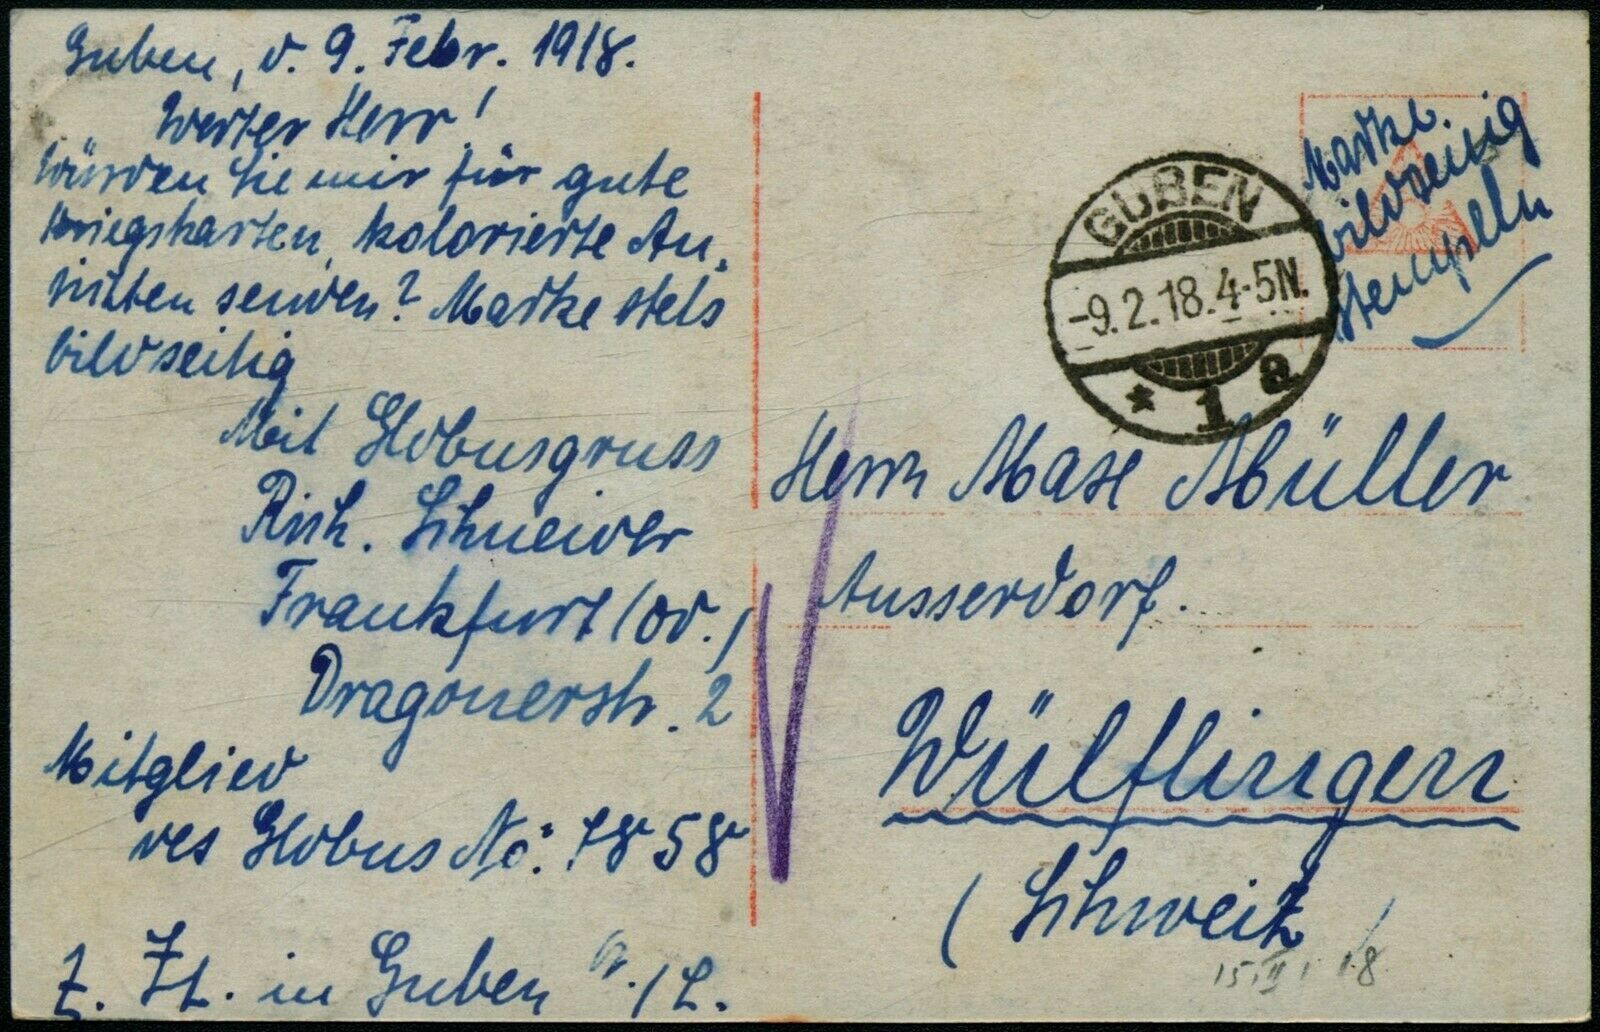 Guben, d. 9. Febr. 1918.
Werter Herr!
Würden Sie mir für gute
Kriegskarten, kolorierte An-
sichten senden? Marke stets
bildseitig
Mit Globusgruss
Rich. Schneider
Frankfurt (Od.)
Dragonerstr. 2
Mitglied
des Globus No: 7858
z. Zt. in Guben a./L.
Marke
bildseitig
stempeln
GUBEN
-9.2.18.4-5N.
* 1 a
Herrn Max Müller
Ausserdorf.
Wülflingen
(Schweiz)
15. II. 18